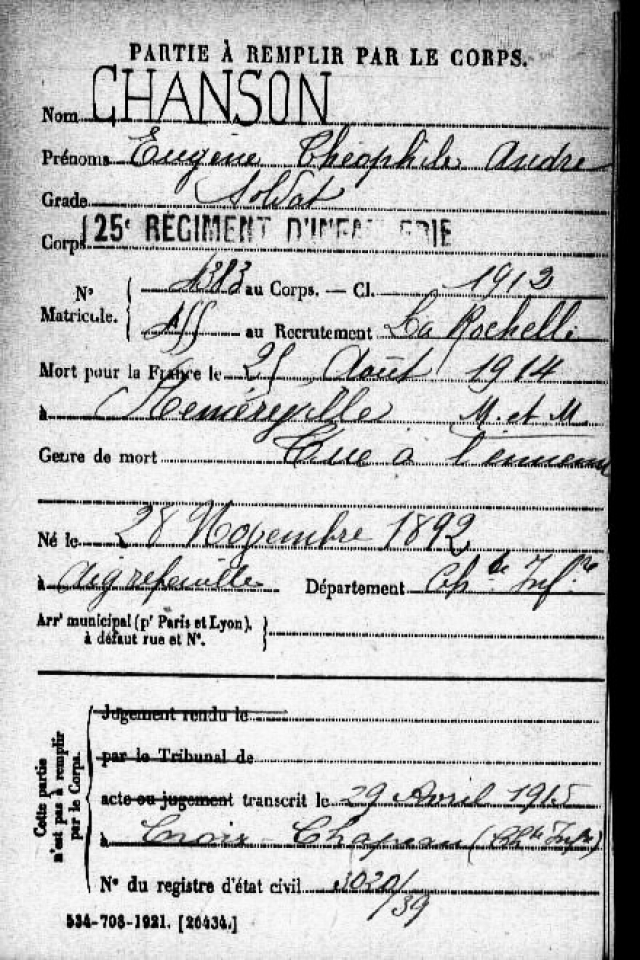 PARTIE À REMPLIR PAR LE CORPS.
Nom CHANSON
Prénoms Eugène Théophile André
Grade Soldat
Corps 125e RÉGIMENT D'INFANTERIE
N° Matricule. { 4383 au Corps. — Cl. 1912
155 au Recrutement La Rochelle
Mort pour la France le 25 Août 1914
à Reméréville M. et M.
Genre de mort Tué à l'ennemi
Né le 28 Novembre 1892
à Aigrefeuille Département Ch te Infre
Arrt municipal (pr Paris et Lyon), à défaut rue et N°. }
Cette partie n'est pas à remplir par le Corps.
Jugement rendu le
par le Tribunal de
acte ou jugement transcrit le 29 Avril 1915
à Croix-Chapeau (Ch te Infre)
N° du registre d'état civil 3020/39
534-708-1921. [26434.]